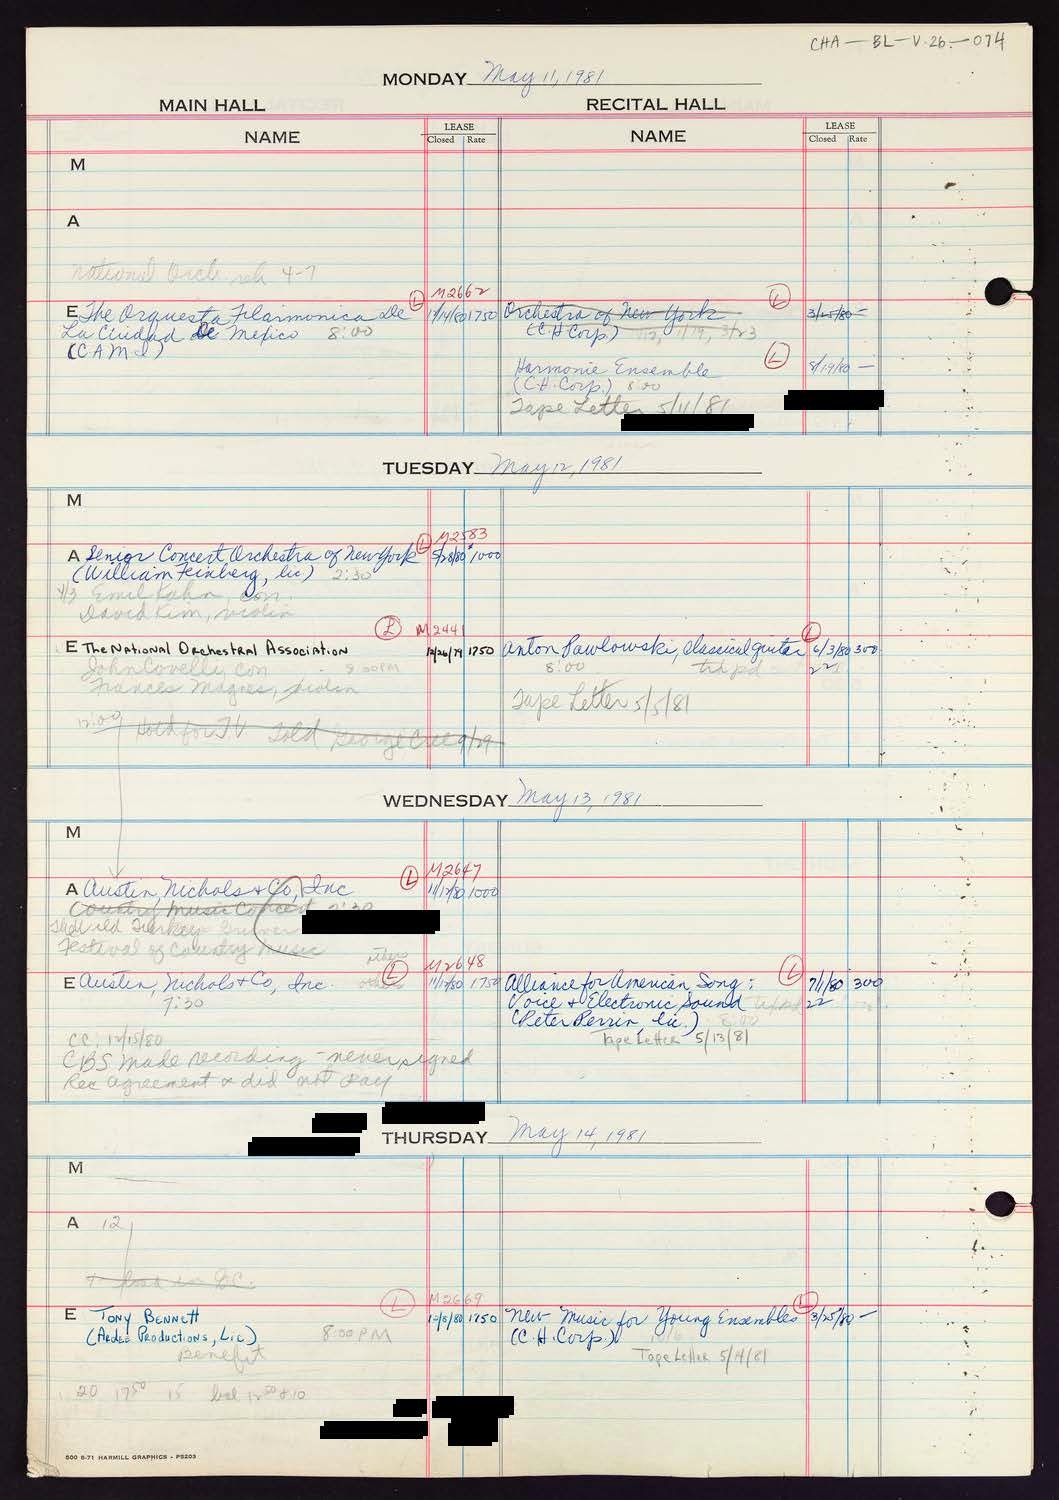 CHA-BL-V.26-074
MONDAY May 11, 1981
MAIN HALL RECITAL HALL
NAME LEASE Closed Rate NAME LEASE Closed Rate
M
A
National Orch. reh 4-7
M2662
E The Orquesta Filarmonica De L 1/14/80 1750
La Ciudad de Mexico 8:00
(CAMI)
Orchestra of New York L 3/25/80 -
(C.H. Corp.) 1/12, 1/19, 3/23
Harmonie Ensemble L 8/19/80 -
(C.H. Corp.) 8:00
Tape Letter 5/11/81
TUESDAY May 12, 1981
M
M2583
A Senior Concert Orchestra of New York L 5/28/80 1000
(William Feinberg, lic.) 2:30
Emil Kahn, con.
David Kim, violin
L M2441
E The National Orchestral Association 12/26/79 1750
John Covelli, con 8:00PM
Frances Magnes, violin
12:00 Hold for TV Told George Cree 9/29
Anton Pawlowski, classical guitar L 6/3/80 300
8:00
Tape Letter 5/5/81
WEDNESDAY May 13, 1981
M
L M2647
A Austin, Nichols & Co, Inc 11/17/80 1000
Country Music Concert 2:30
Wild Turkey
Festival of Country Music
L M2648
E Austin, Nichols & Co, Inc. 11/17/80 1750
7:30
CC: 12/15/80
CBS made recording - never signed
Rec agreement & did not pay
Alliance for American Song: L 7/1/80 300
Voice & Electronic Sound
(Peter Perrin, lic.) 8:00
Tape Letter 5/13/81
THURSDAY May 14, 1981
M
A 12
load in
L M2669
E Tony Bennett 1750
(Ardee Productions, Lic) 8:00 PM
Benefit
20 1750 15
New Music for Young Ensembles L 3/25/80 -
(C.H. Corp.)
Tape Letter 5/14/81
500 8-71 HARMILL GRAPHICS - PS203